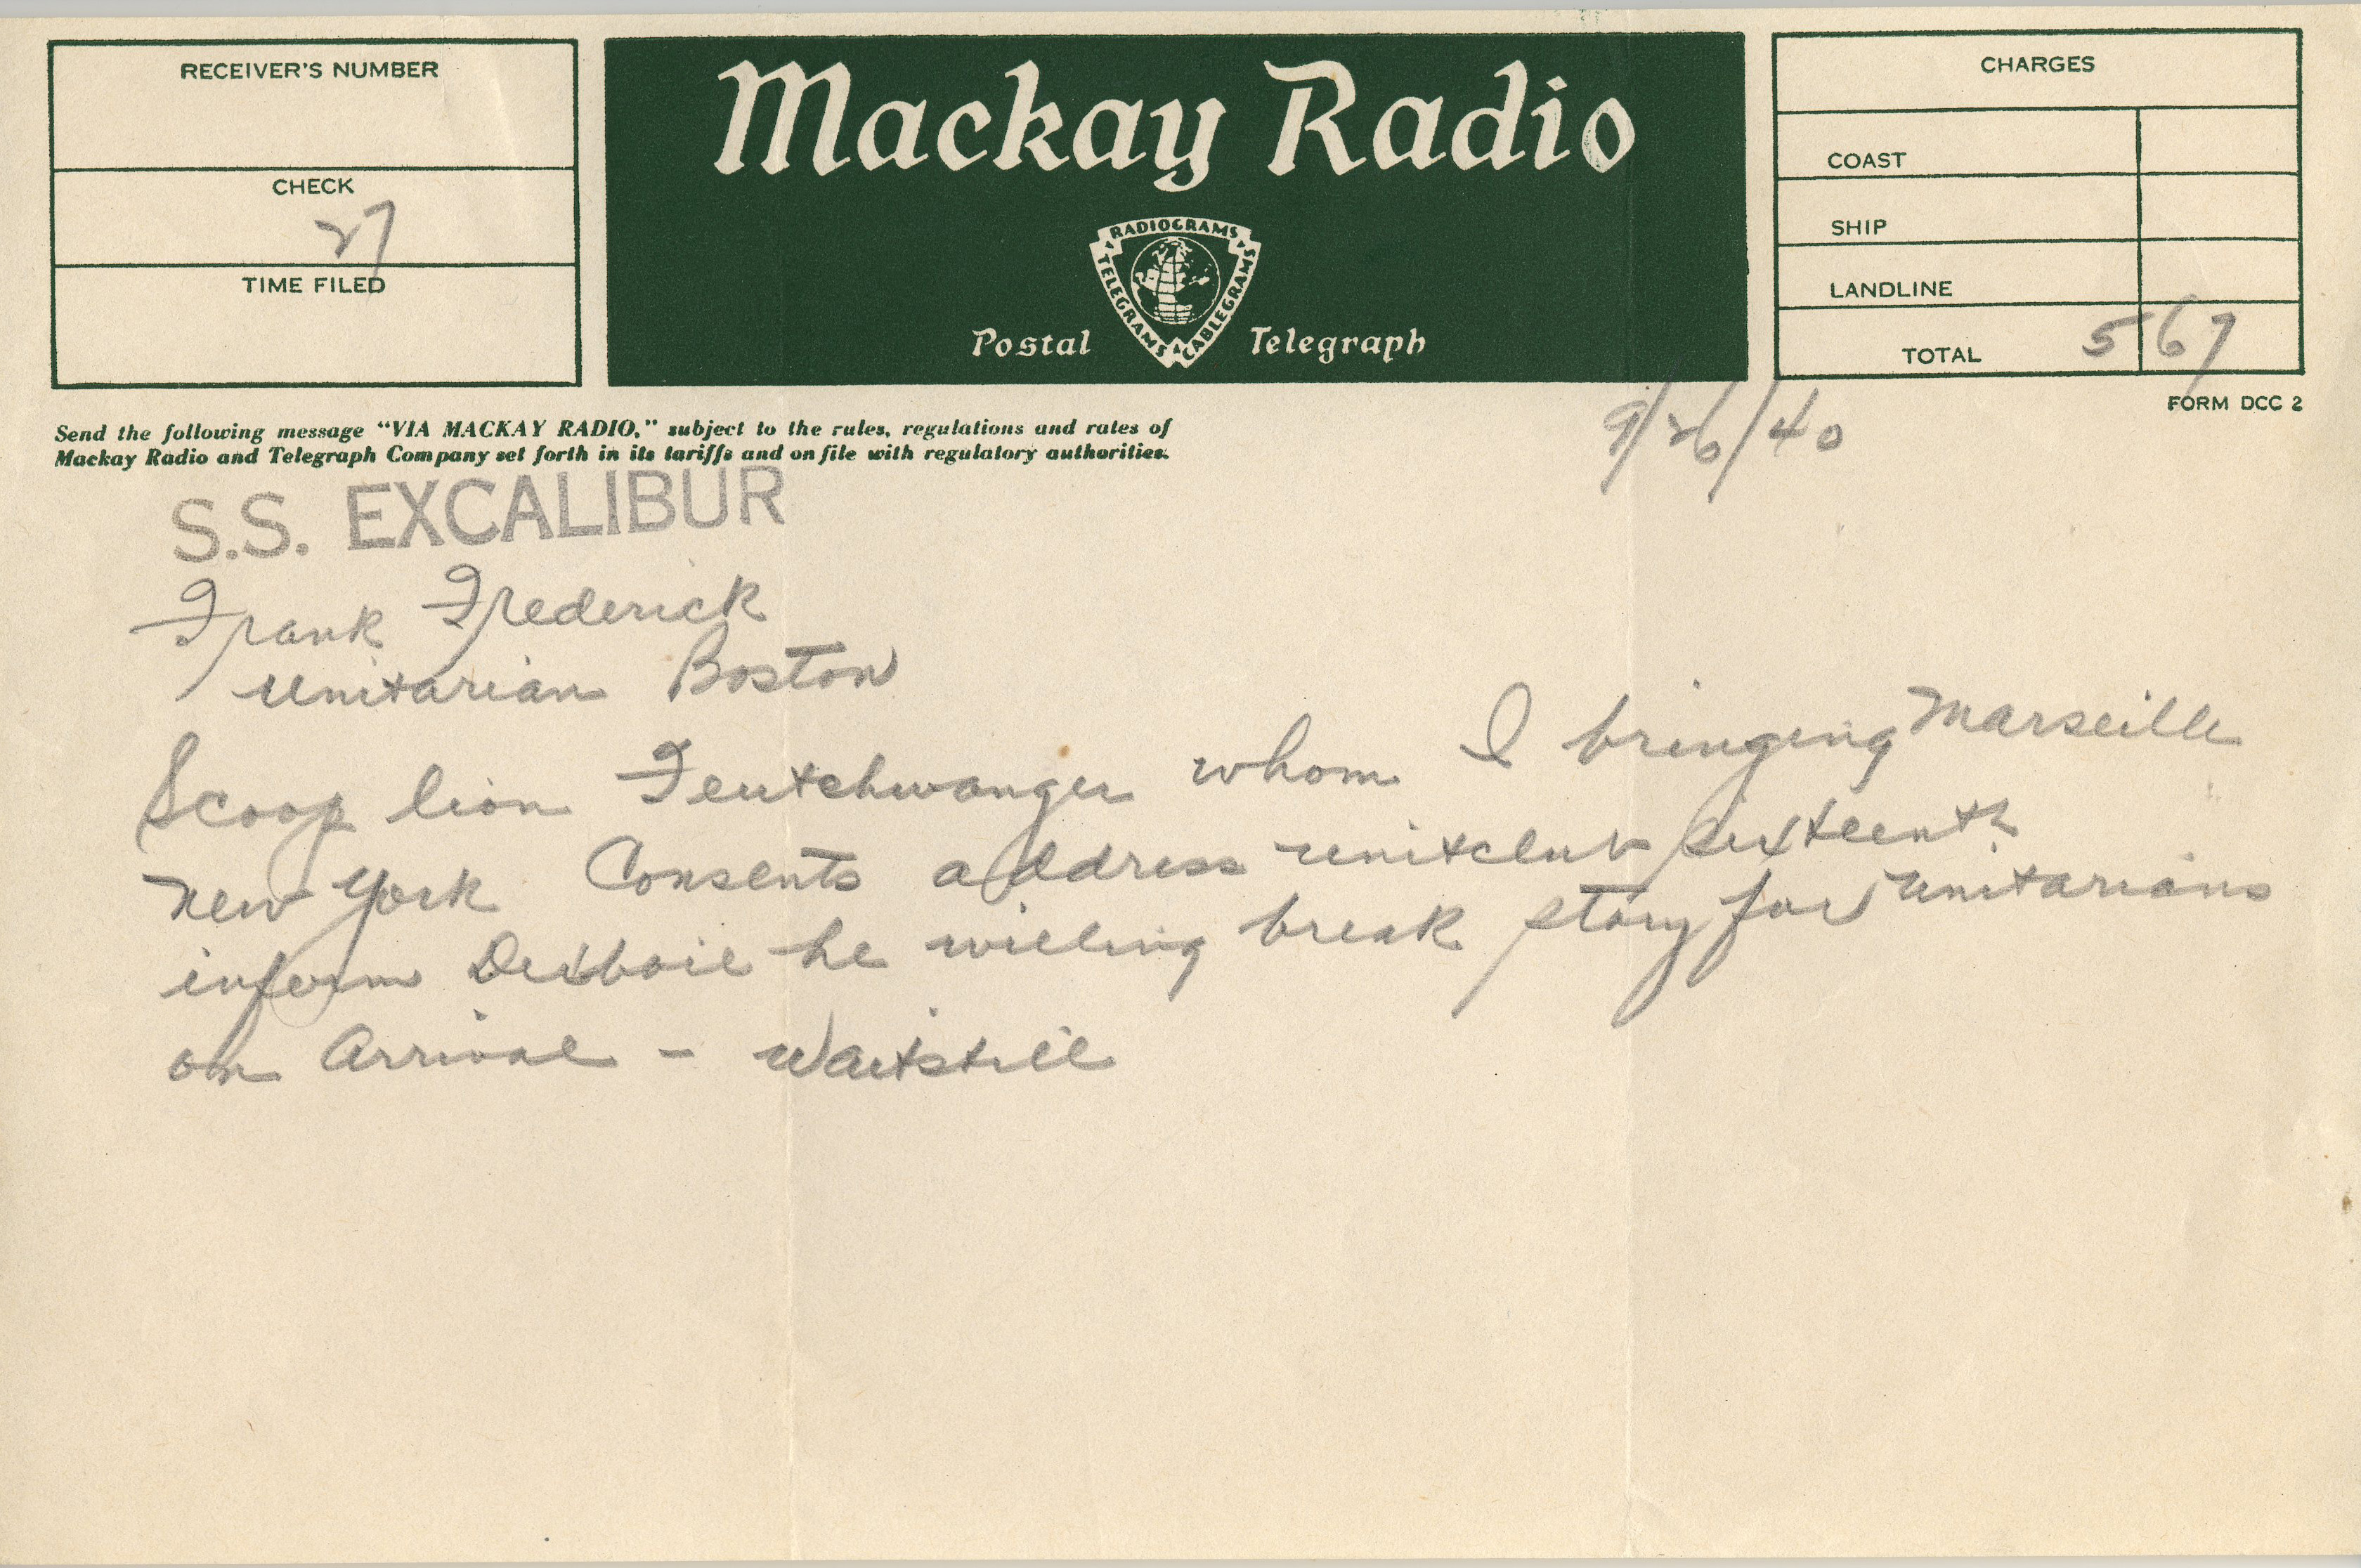 RECEIVER'S NUMBER
CHECK
27
TIME FILED
Mackay Radio
RADIOGRAMS
TELEGRAMS
CABLEGRAMS
Postal Telegraph
CHARGES
COAST
SHIP
LANDLINE
TOTAL 5 67
FORM DCC 2
Send the following message "VIA MACKAY RADIO," subject to the rules, regulations and rates of
Mackay Radio and Telegraph Company set forth in its tariffs and on file with regulatory authorities.
9/26/40
S.S. EXCALIBUR
Frank Frederick
Unitarian Boston
Scoop lion Feutchwanger whom I bringing Marseille
New York Consents address unitclub sixteenth
inform he willing break story for Unitarians
on Arrival - Waitstill